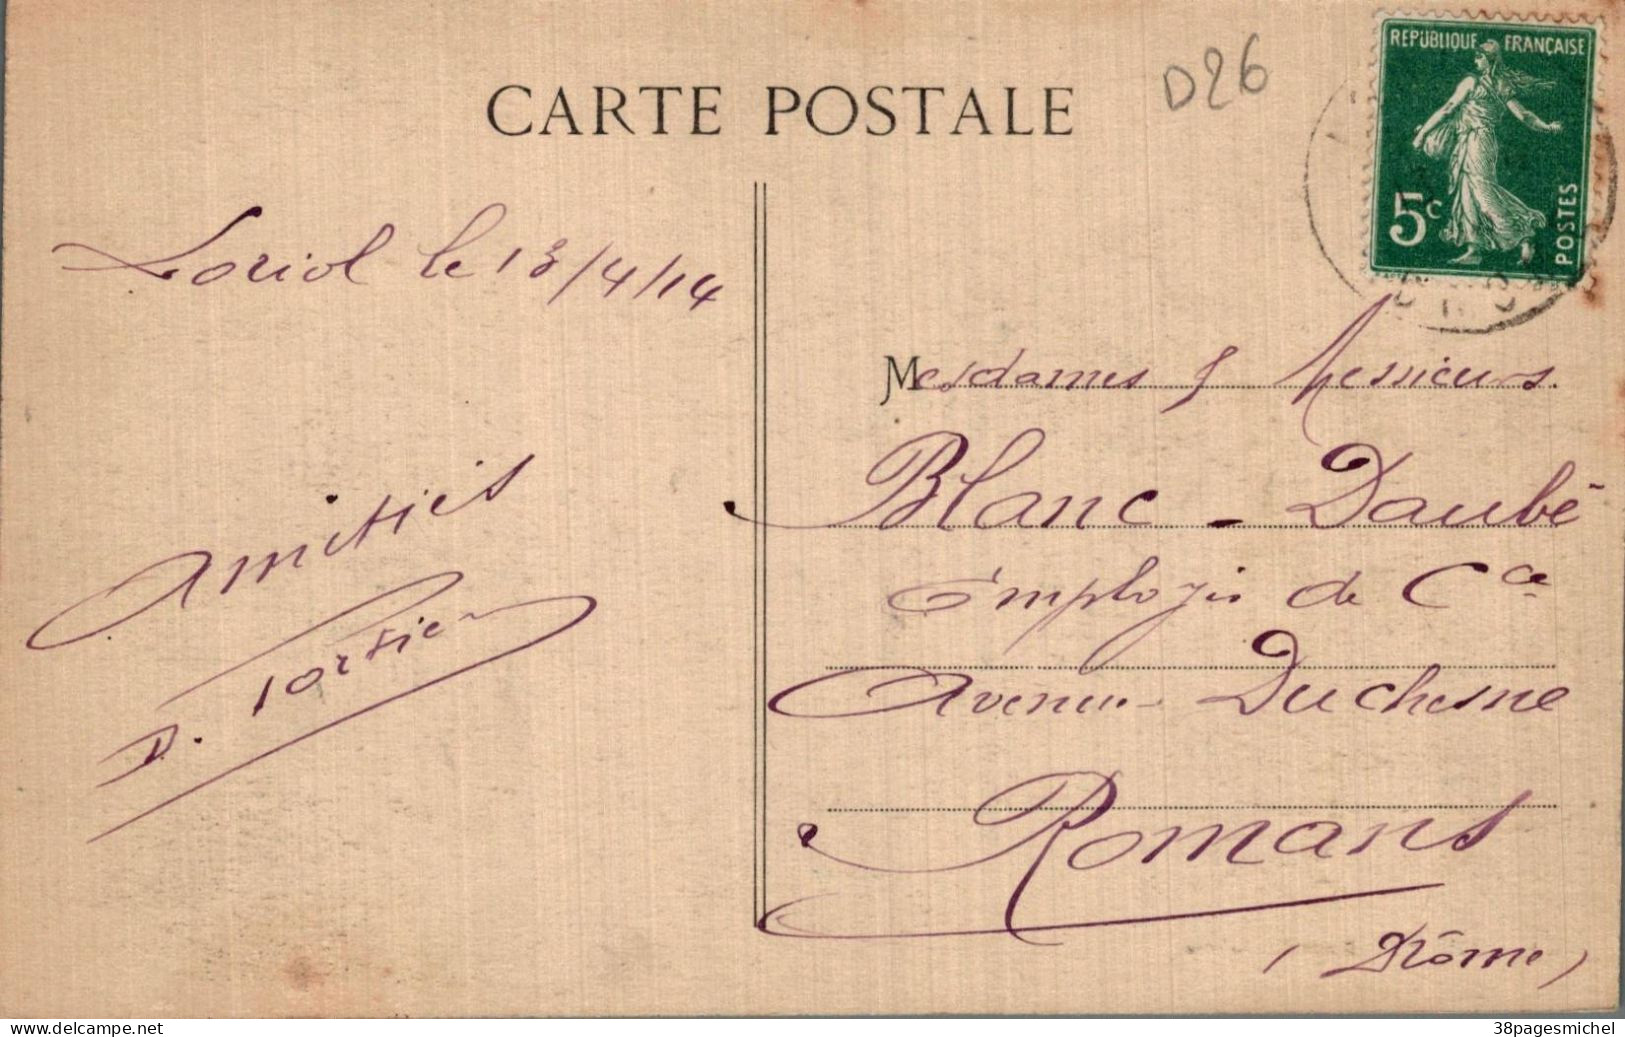 CARTE POSTALE
D26
REPUBLIQUE FRANÇAISE
5c
POSTES
Loriol le 13/4/14
Amitiés
D. Portier
Mesdames & Messieurs
Blanc - Daubé
Employés de Cce
Avenue Duchesne
Romans
(Drôme)
www.delcampe.net
38pagesmichel